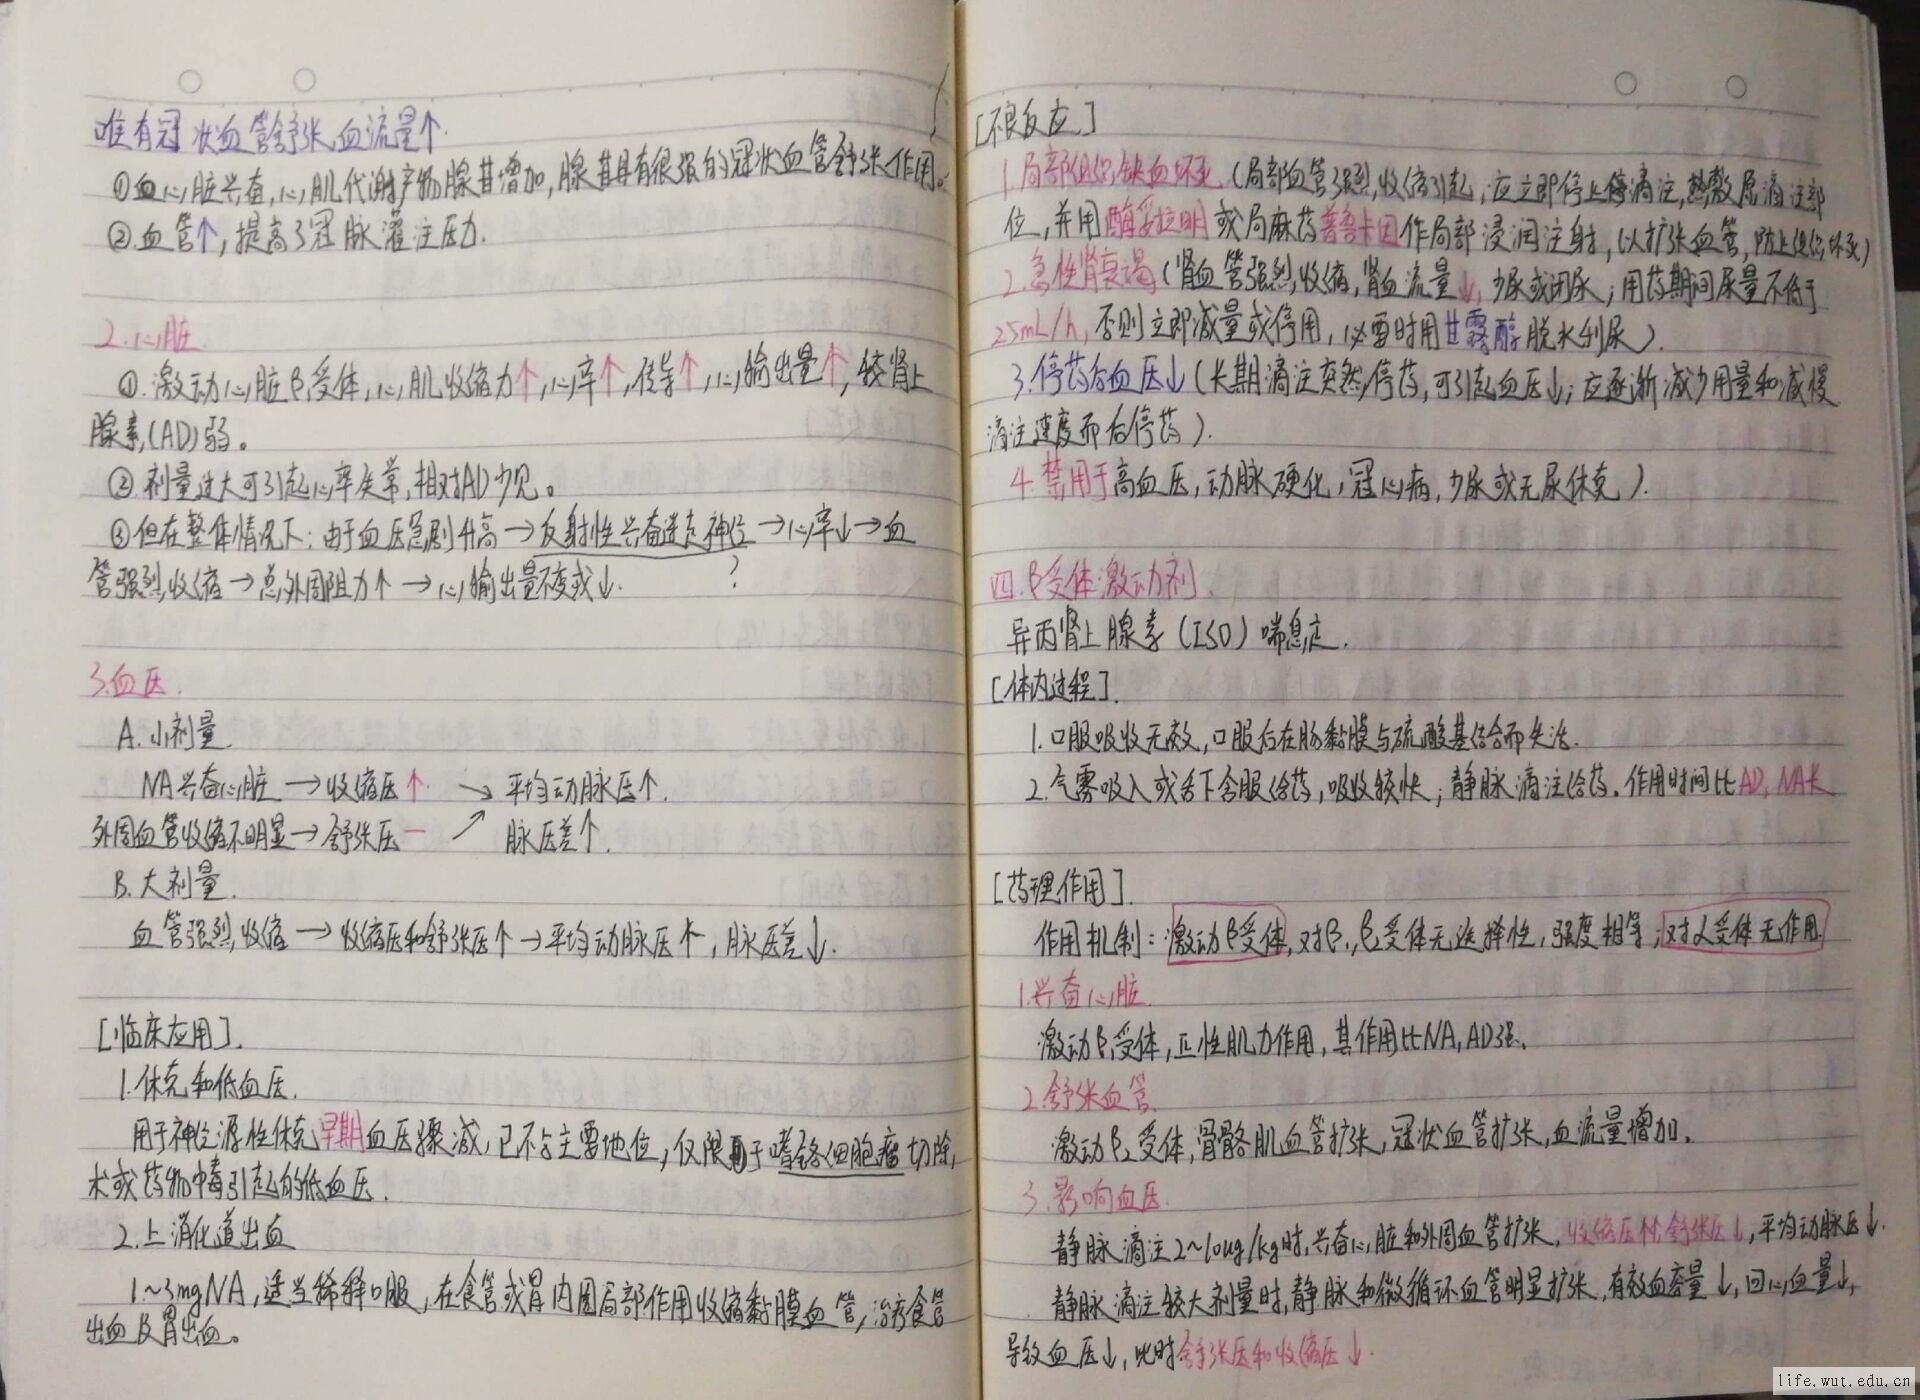 唯有冠状血管舒张,血流量↑.
①血心脏兴奋,心肌代谢产物腺苷增加,腺苷具有很强的冠状血管舒张作用。
②血管↑,提高了冠脉灌注压力.
2.心脏
①.激动心脏β₁受体,心肌收缩力↑,心率↑,传导↑,心输出量↑,较肾上
腺素(AD)弱。
②剂量过大可引起心率失常,相对AD少见。
③但在整体情况下:由于血压急剧升高→反射性兴奋迷走神经→心率↓→血
管强烈收缩→总外周阻力↑→心输出量不变或↓. ?
3.血压.
A.小剂量.
NA兴奋心脏→收缩压↑ ↘ 平均动脉压↑.
外周血管收缩不明显→舒张压一 ↗ 脉压差↑.
B.大剂量.
血管强烈收缩→收缩压和舒张压↑→平均动脉压↑,脉压差↓.
[临床应用].
1.休克和低血压.
用于神经源性休克早期血压骤减,已不占主要地位,仅限用于嗜铬细胞瘤切除
术或药物中毒引起的低血压.
2.上消化道出血
1~3mgNA,适当稀释口服,在食管或胃内因局部作用收缩黏膜血管,治疗食管
出血及胃出血。
[不良反应]
1.局部组织缺血坏死(局部血管强烈收缩引起,应立即停止滴注,热敷原滴注部
位,并用酚妥拉明或局麻药普鲁卡因作局部浸润注射,以扩张血管,防止组织坏死)
2.急性肾衰竭(肾血管强烈收缩,肾血流量↓,少尿或闭尿;用药期间尿量不低于
25mL/h,否则立即减量或停用,必要时用甘露醇脱水利尿).
3.停药后血压↓(长期滴注突然停药,可引起血压↓;应逐渐减少用量和减慢
滴注速度而后停药).
4.禁用于高血压,动脉硬化,冠心病,少尿或无尿休克).
四.β受体激动剂.
异丙肾上腺素(ISO)喘息定.
[体内过程].
1.口服吸收无效,口服后在肠黏膜与硫酸基结合而失活.
2.气雾吸入或舌下含服给药,吸收较快;静脉滴注给药。作用时间比AD,NA长
[药理作用].
作用机制:激动β受体,对β₁,β₂受体无选择性,强度相等;对α受体无作用.
1.兴奋心脏.
激动β₁受体,正性肌力作用,其作用比NA,AD强.
2.舒张血管.
激动β₂受体,骨骼肌血管扩张,冠状血管扩张,血流量增加.
3.影响血压.
静脉滴注2~10ug/kg时,兴奋心脏和外周血管扩张,收缩压 舒张压↓,平均动脉压↓.
静脉滴注较大剂量时,静脉和微循环血管明显扩张,有效血容量↓,回心血量↓,
导致血压↓,此时舒张压和收缩压↓.
life.wut.edu.cn